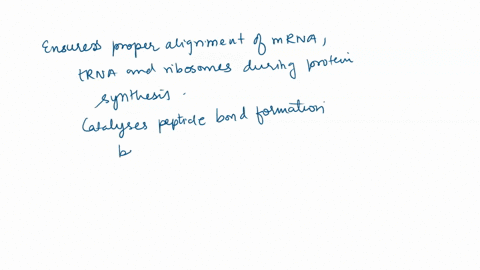 Ensuress proper alignment of mRNA,
tRNA and ribosomes during protein
synthesis.
Catalyses peptide bond formation
b